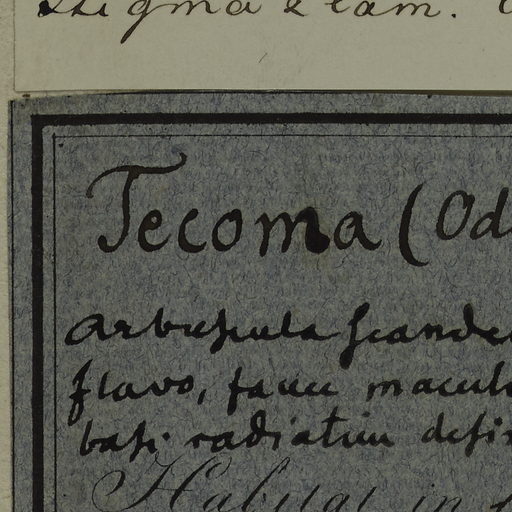 stigma 2 lam.
Tecoma (Od
Arbuscula scande
flavo, fauce macul
basi radiatim defi
Habitat in